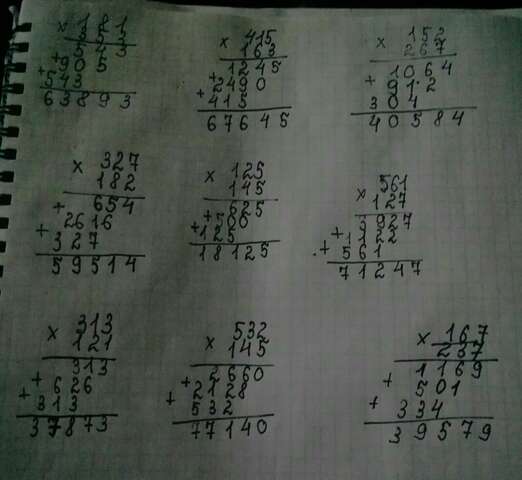 × 181
353
543
+ 905
+ 543
63893
× 415
163
1245
+ 2490
+ 415
67645
× 152
267
1064
+ 912
304
40584
× 327
182
+ 654
2616
+ 327
59514
× 125
145
625
+ 500
+ 125
18125
× 561
127
3927
+ 1122
+ 561
71247
× 313
121
313
+ 626
+ 313
37873
× 532
145
2660
+ 2128
+ 532
77140
× 167
237
1169
+ 501
+ 334
39579